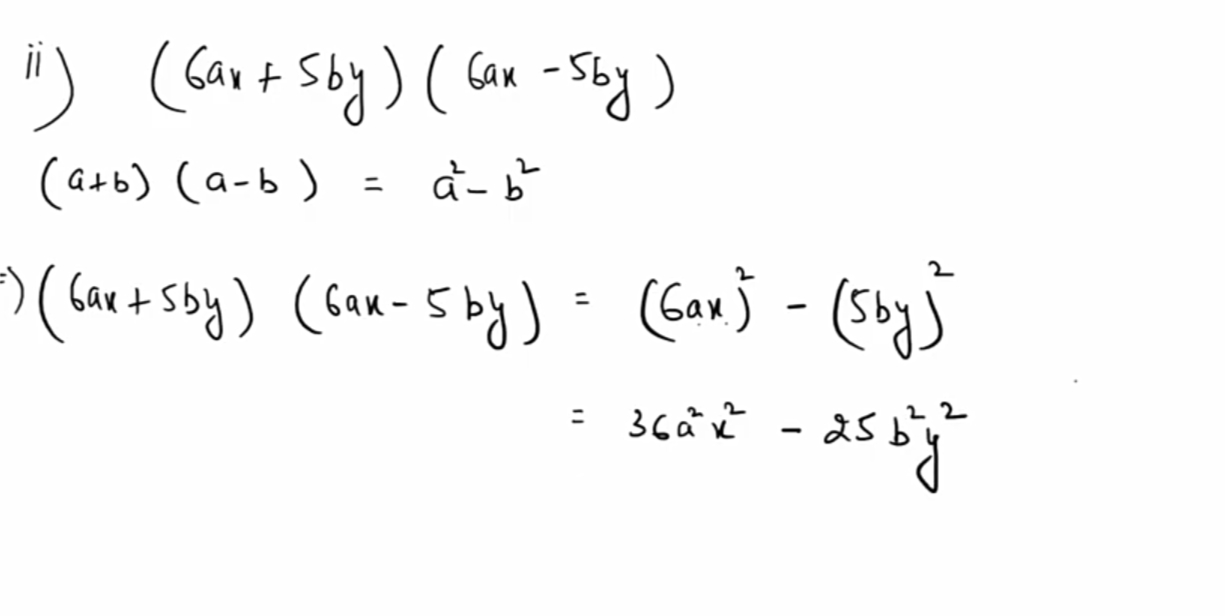 ii) (6ax + 5by) (6ax - 5by)
(a+b) (a-b) = a² - b²
=) (6ax + 5by) (6ax - 5by) = (6ax)² - (5by)²
= 36a²x² - 25b²y²